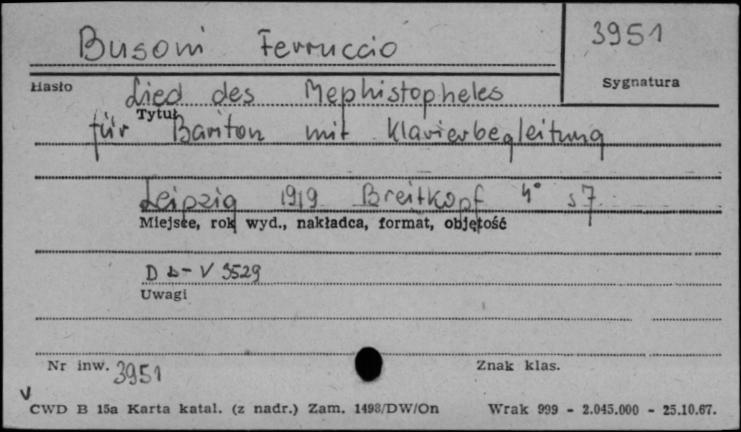 Busoni Ferruccio
3951
Hasło
Sygnatura
Lied des Mephistopheles
Tytuł
für Bariton mit Klavierbegleitung
Leipzig 1919 Breitkopf 4° s 7
Miejsce, rok wyd., nakładca, format, objętość
D b - V 3529
Uwagi
Nr inw. 3951
Znak klas.
V
CWD B 15a Karta katal. (z nadr.) Zam. 1498/DW/On Wrak 999 - 2.045.000 - 25.10.67.